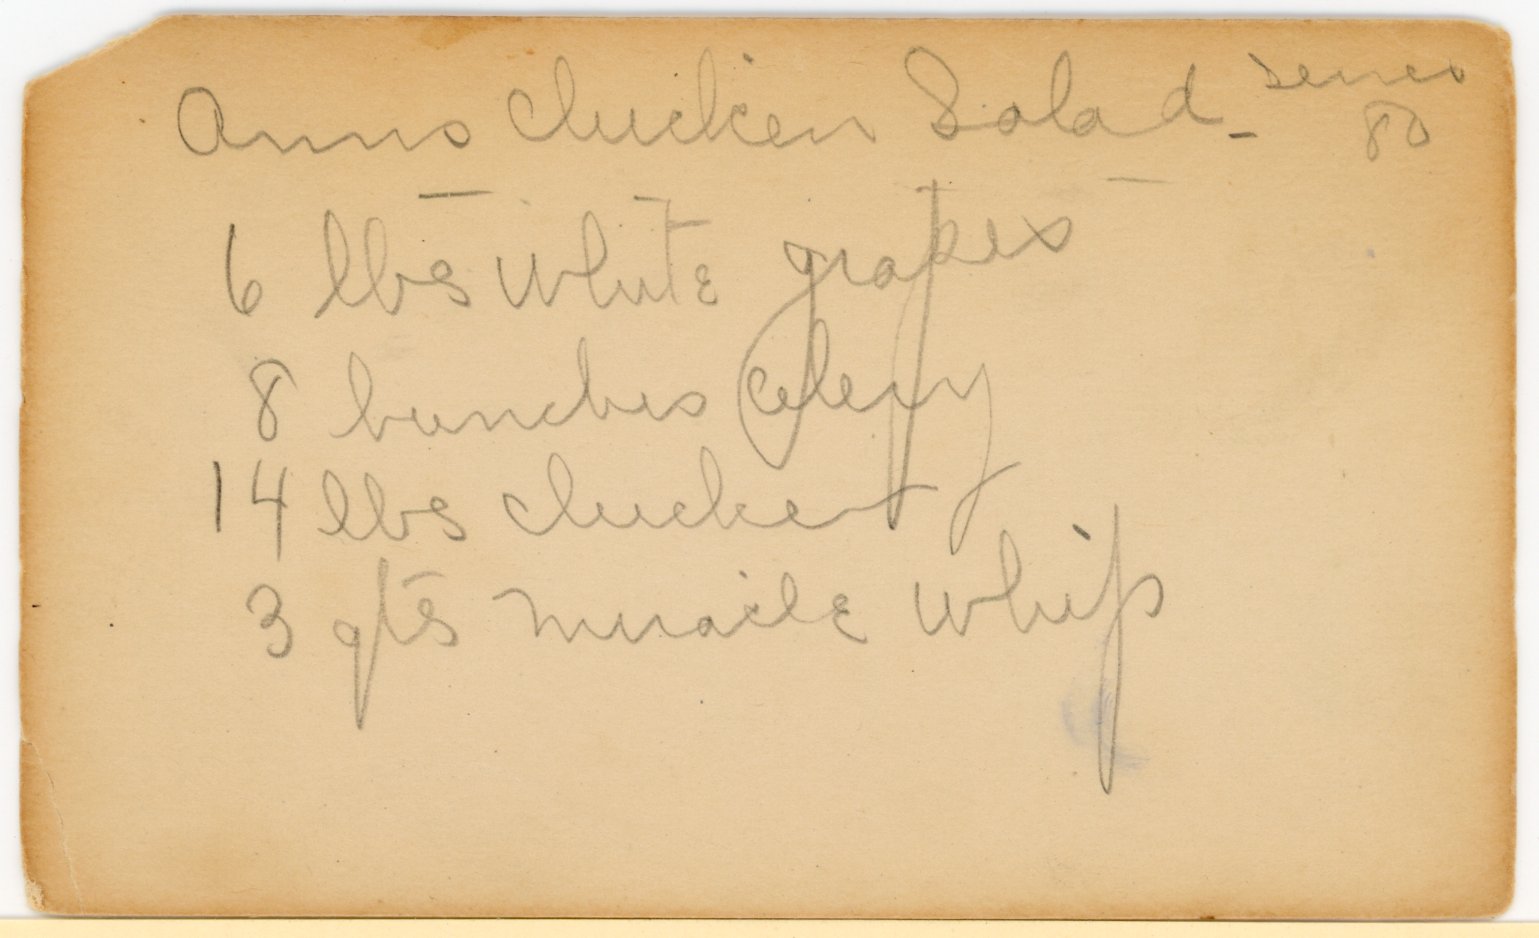 Anns Chicken Salad - serves 80
6 lbs white grapes
8 bunches celery
14 lbs chicken
3 qts miracle whip